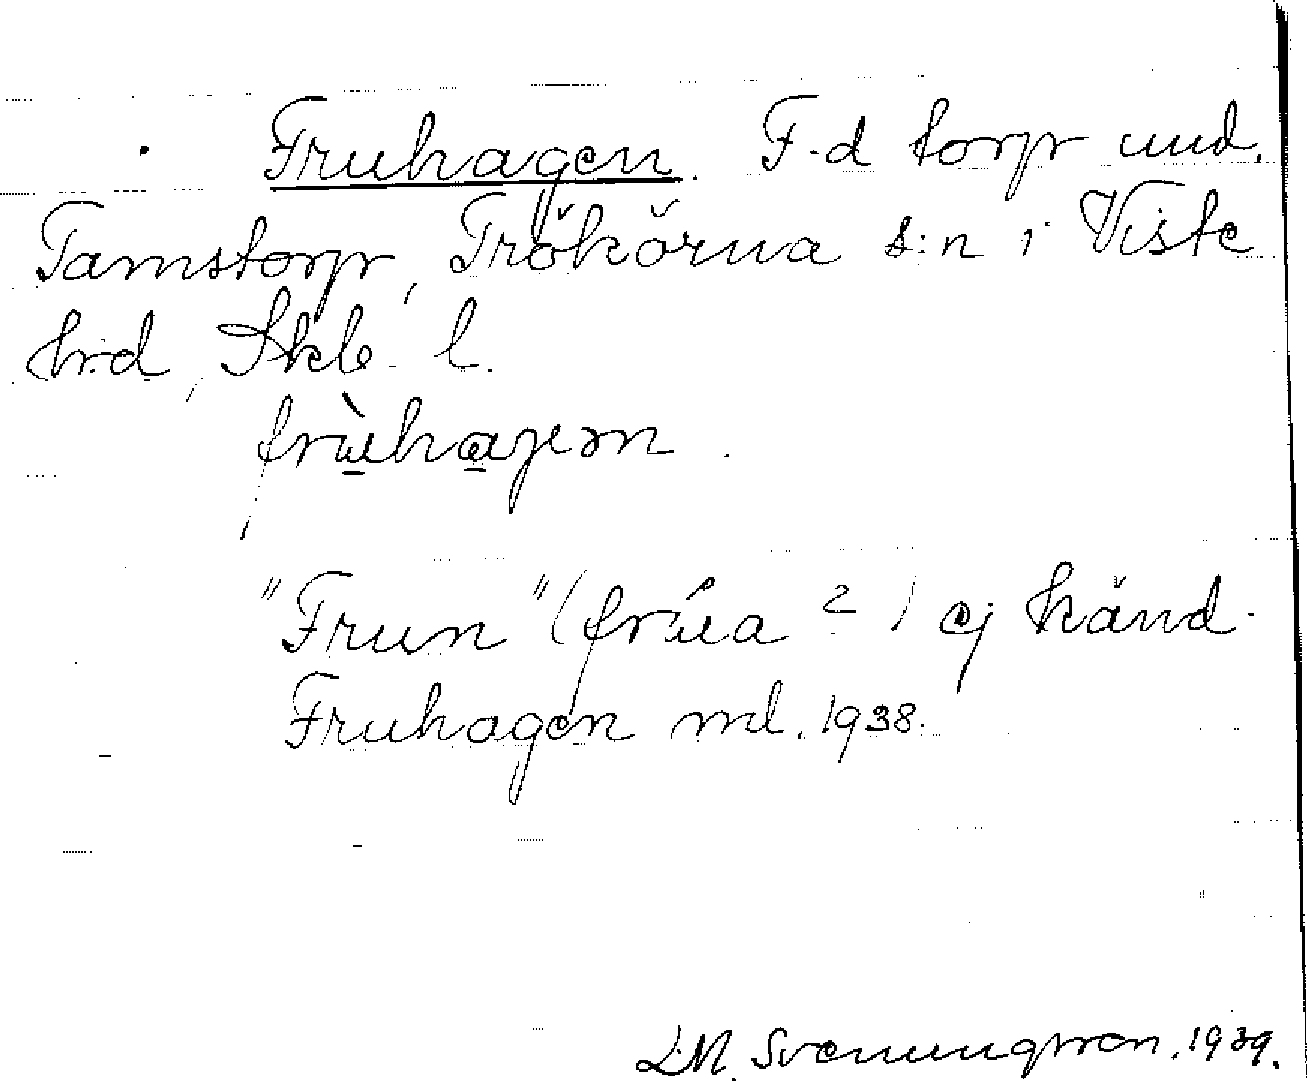 Fruhagen. F.d torp und.
Tamstorp, Trökörna s:n i Viste
hrd, Skb. l.
frùhagen.
"Frun" (frúa?) ej känd.
Fruhagen ml. 1938.
L.M. Svenungsson. 1939.